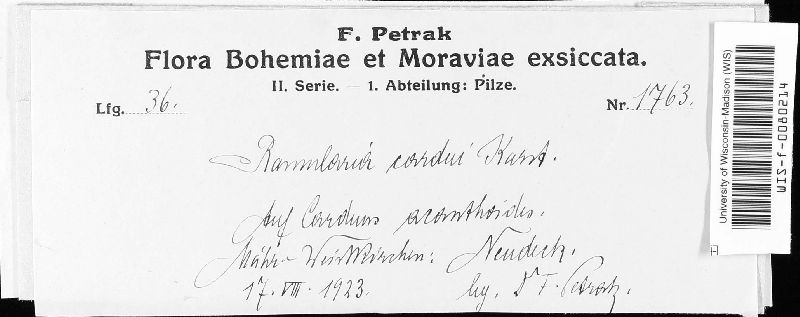 F. Petrak
Flora Bohemiae et Moraviae exsiccata.
II. Serie. — 1. Abteilung: Pilze.
Lfg. 36.
Nr. 1763.
Ramularia cardui Karst.
Auf Carduus acanthoides.
Mähr.-Weisskirchen: Neudeck.
17. VIII. 1923.
lig. Dr F. Petrak.
University of Wisconsin-Madison (WIS)
WIS-f-0080214